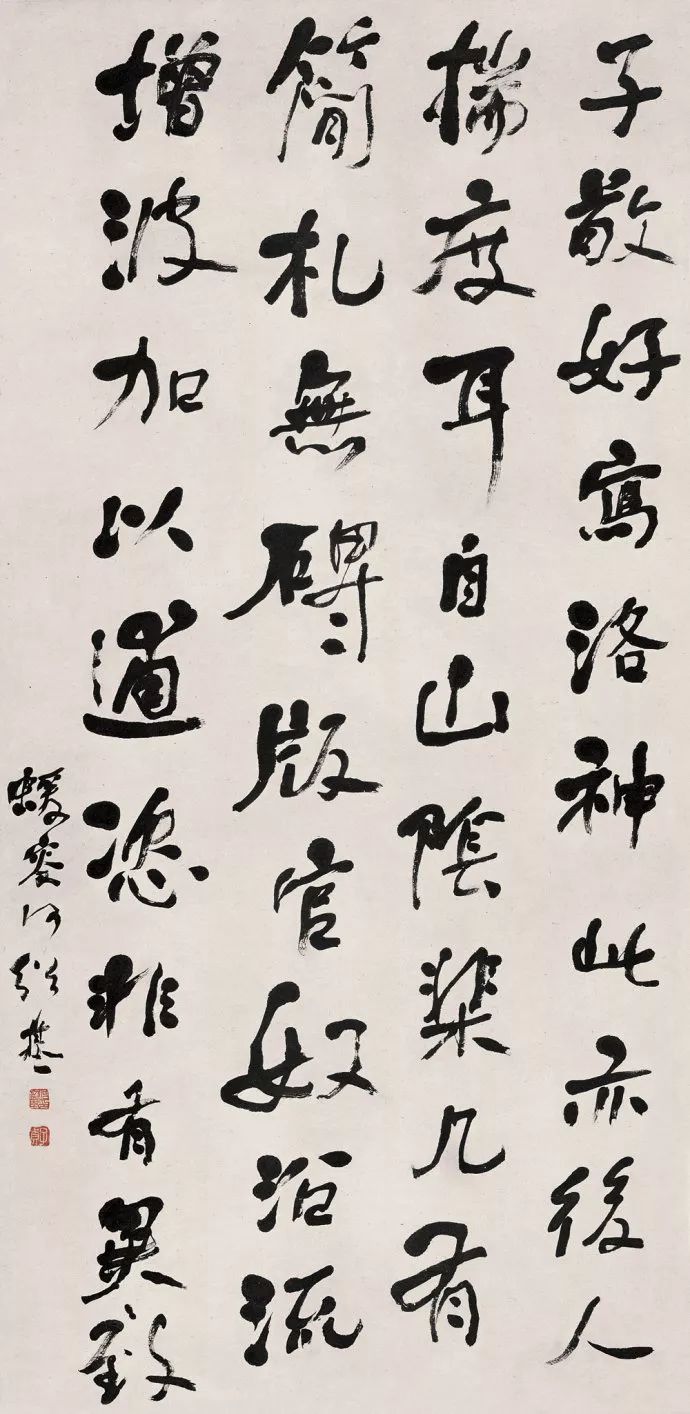 子敬好寫洛神此亦後人
揣度耳自山陰棐几有
簡札無礙版官奴沿流
增波加以遒恣非有異致
蝯叟何紹基